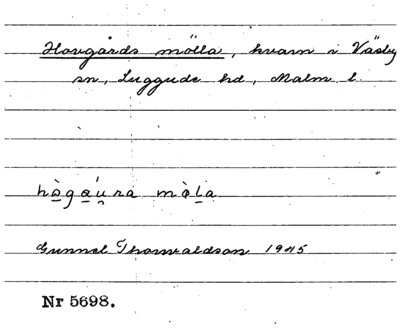 Hovgårds mölla, kvarn i Väsby
sn, Luggude hd, Malm l.
Gunnel Thorwaldson 1945
Nr 5698.